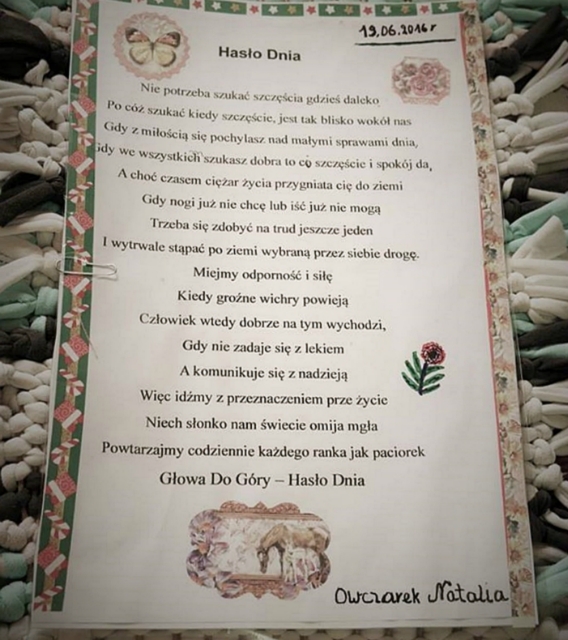 19.06.2016r
Hasło Dnia
Nie potrzeba szukać szczęścia gdzieś daleko
Po cóż szukać kiedy szczęście, jest tak blisko wokół nas
Gdy z miłością się pochylasz nad małymi sprawami dnia,
Gdy we wszystkich szukasz dobra to co szczęście i spokój da,
A choć czasem ciężar życia przygniata cię do ziemi
Gdy nogi już nie chcę lub iść już nie mogą
Trzeba się zdobyć na trud jeszcze jeden
I wytrwale stąpać po ziemi wybraną przez siebie drogę.
Miejmy odporność i siłę
Kiedy groźne wichry powieją
Człowiek wtedy dobrze na tym wychodzi,
Gdy nie zadaje się z lekiem
A komunikuje się z nadzieją
Więc idźmy z przeznaczeniem prze życie
Niech słonko nam świecie omija mgła
Powtarzajmy codziennie każdego ranka jak paciorek
Głowa Do Góry – Hasło Dnia
Owczarek Natalia